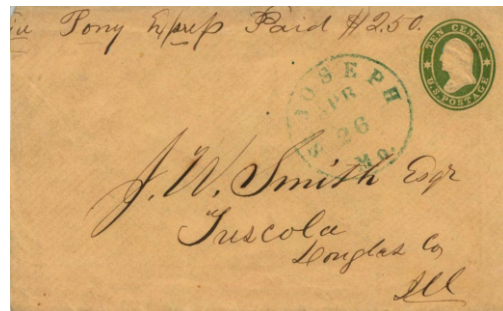 via Pony Express Paid $2.50.
TEN CENTS
U.S. POSTAGE
ST JOSEPH
APR
26
MO.
J. W. Smith Esqr
Tuscola
Douglas Co
Ill